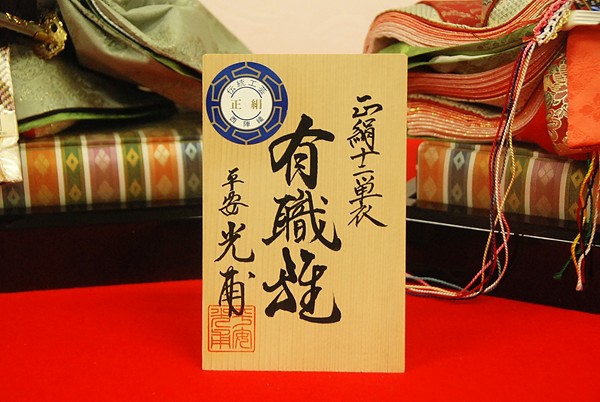 正絹十二単衣
有職雛
平安光甫
伝統工芸
正絹
西陣織
平安
光甫